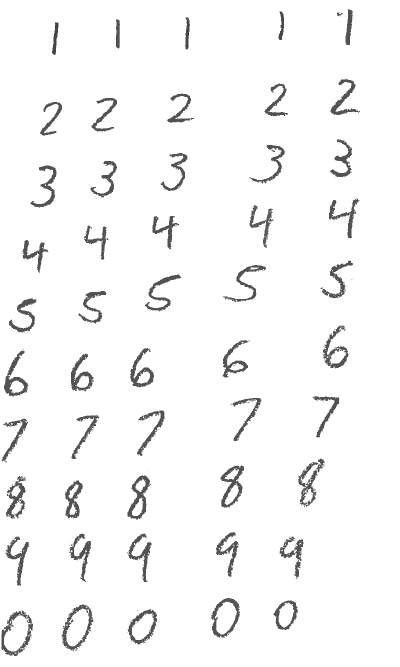 1 1 1 1 1
2 2 2 2 2
3 3 3 3 3
4 4 4 4 4
5 5 5 5 5
6 6 6 6 6
7 7 7 7 7
8 8 8 8 8
9 9 9 9 9
0 0 0 0 0